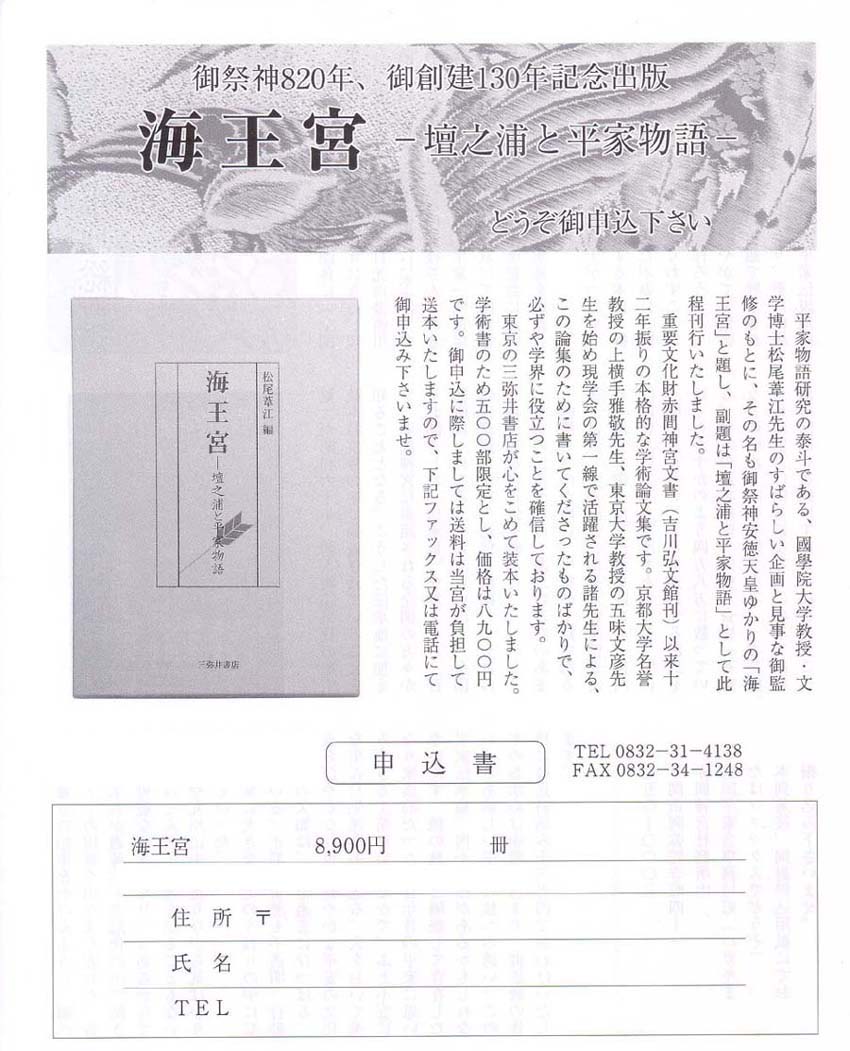 御祭神820年、御創建130年記念出版
海王宮 −壇之浦と平家物語−
どうぞ御申込下さい
平家物語研究の泰斗である、國學院大学教授・文
学博士松尾葦江先生のすばらしい企画と見事な御監
修のもとに、その名も御祭神安徳天皇ゆかりの「海
王宮」と題し、副題は「壇之浦と平家物語」として此
程刊行いたしました。
重要文化財赤間神宮文書（吉川弘文館刊）以来十
二年振りの本格的な学術論文集です。京都大学名誉
教授の上横手雅敬先生、東京大学教授の五味文彦先
生を始め現学会の第一線で活躍される諸先生による、
この論集のために書いてくださったものばかりで、
必ずや学界に役立つことを確信しております。
東京の三弥井書店が心をこめて装本いたしました。
学術書のため五〇〇部限定とし、価格は八九〇〇円
です。御申込に際しましては送料は当宮が負担して
送本いたしますので、下記ファックス又は電話にて
御申込み下さいませ。
松尾葦江 編
海王宮─壇之浦と平家物語
三弥井書店
申込書
TEL 0832−31−4138
FAX 0832−34−1248
海王宮 8,900円 冊
住所 〒
氏名
TEL